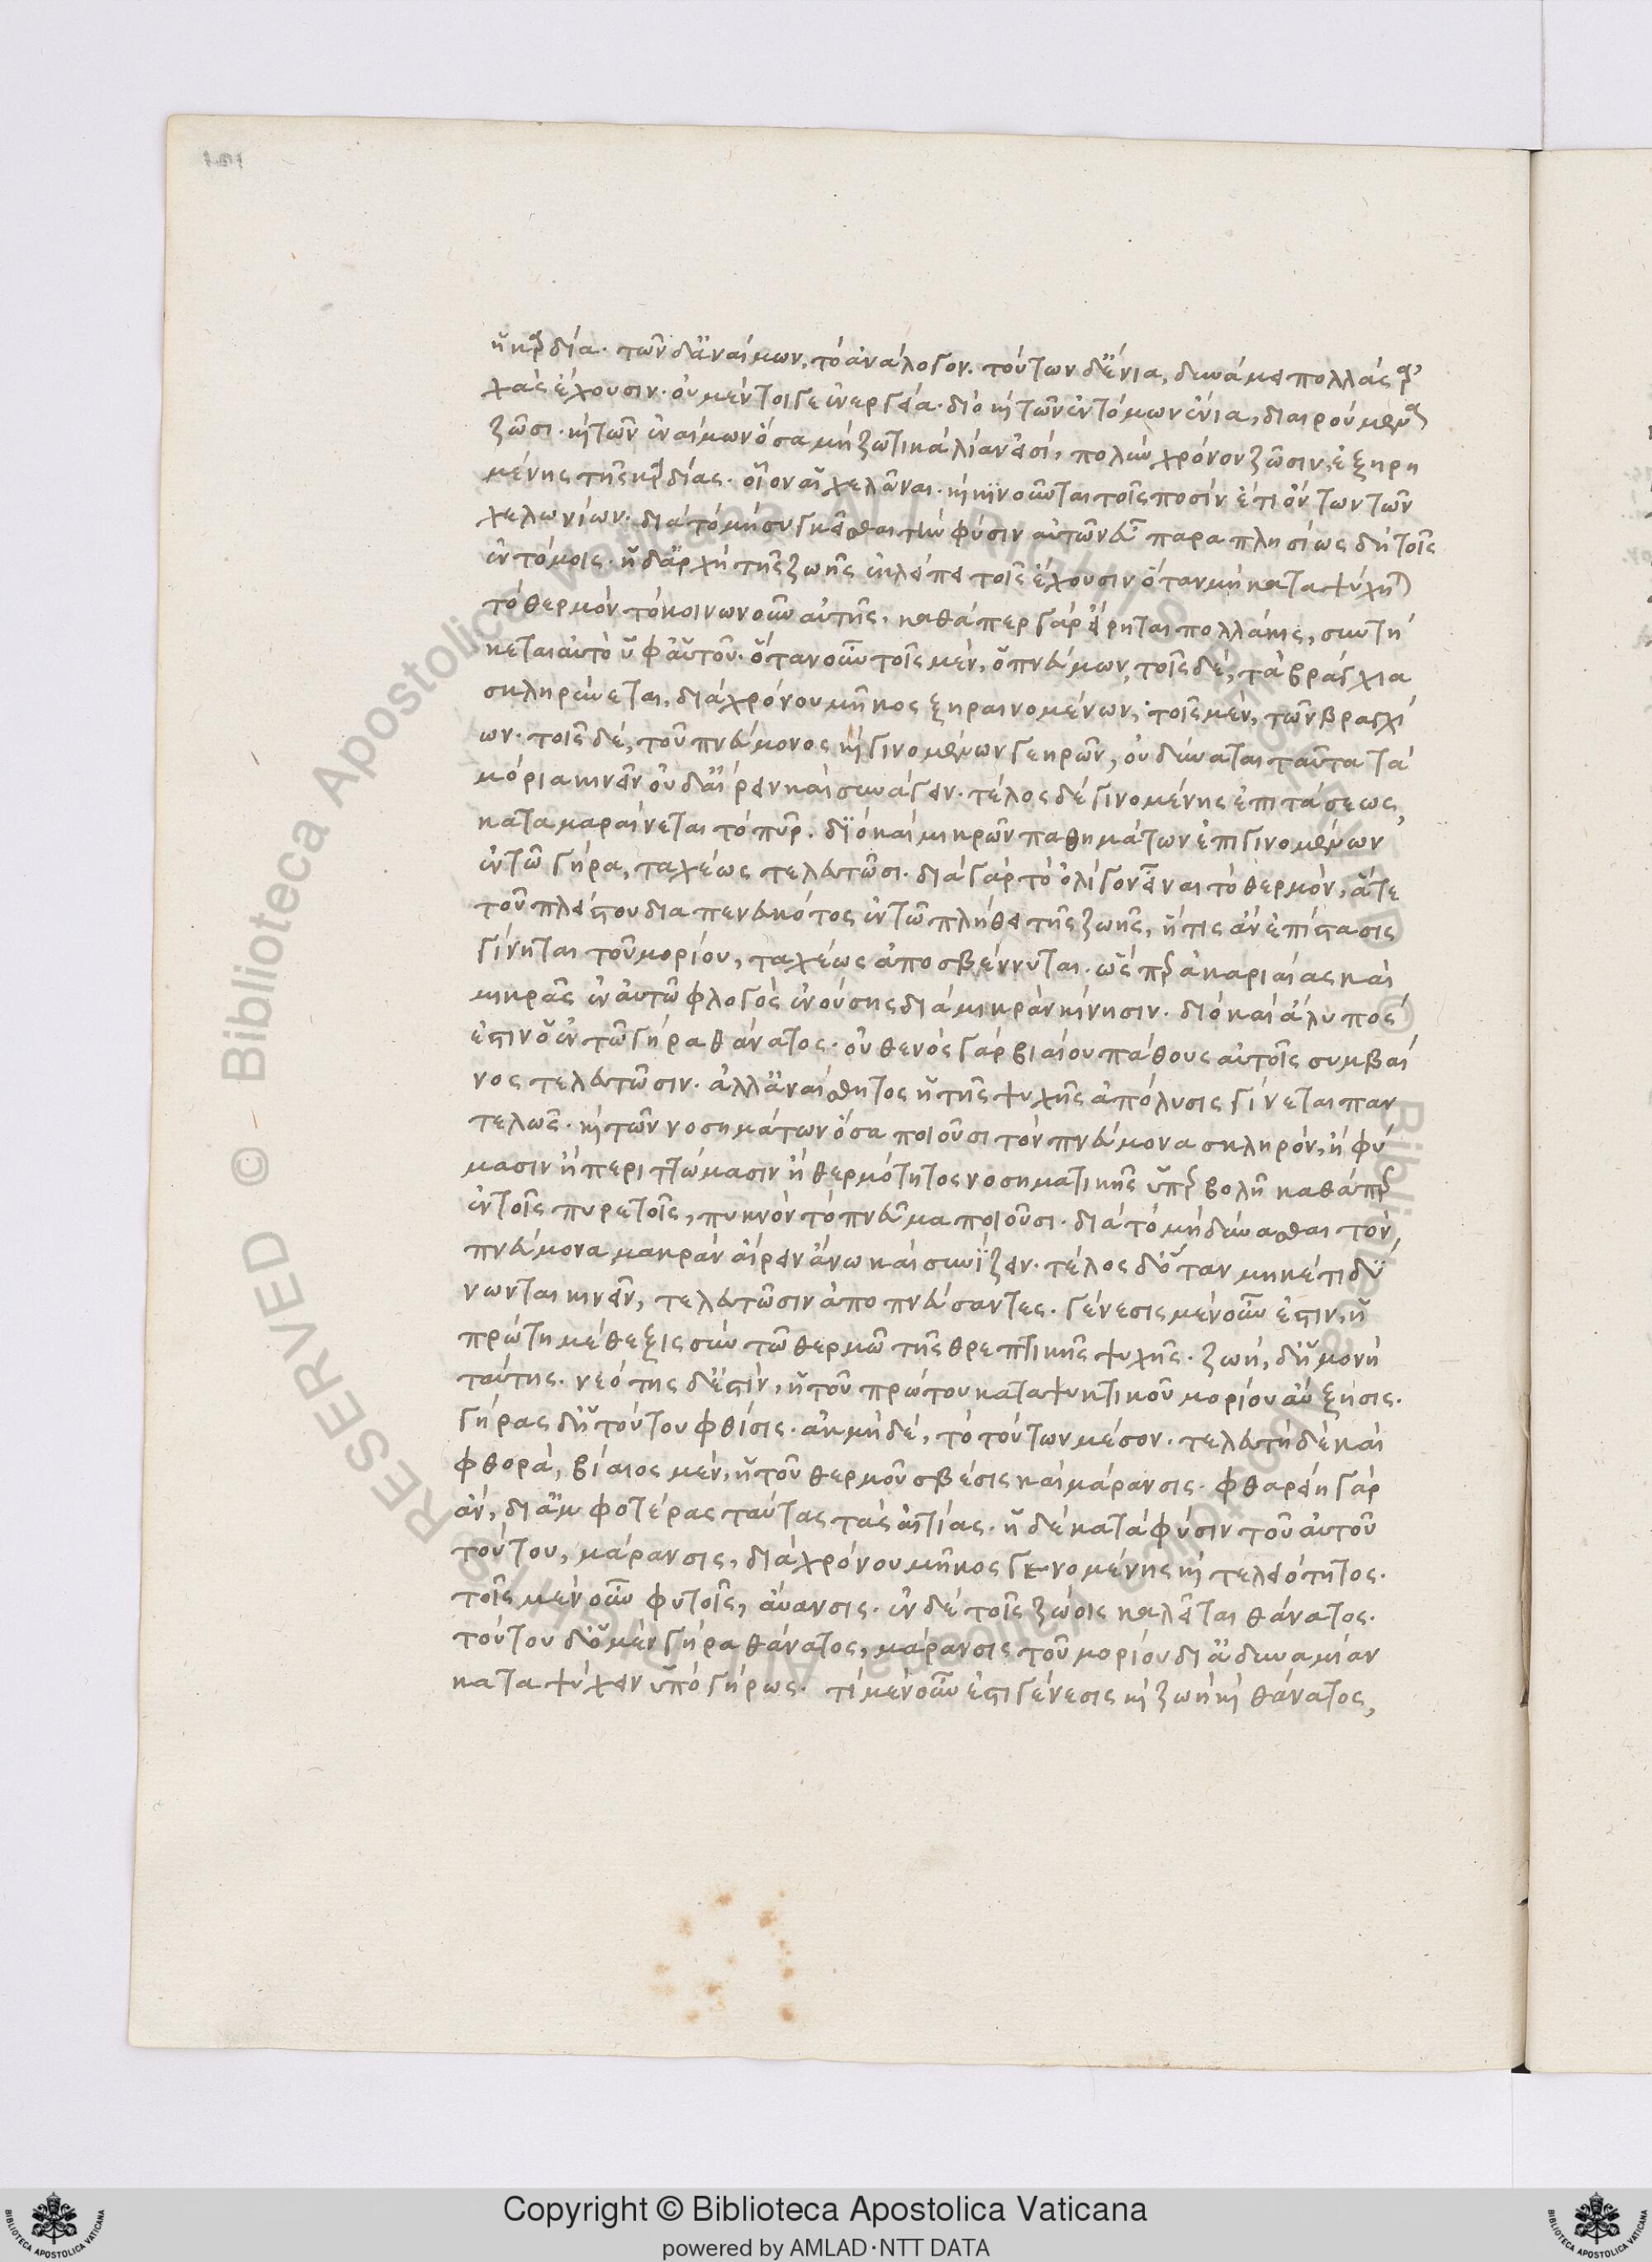 ἡ καρδία· τῶν δ' ἀναίμων, τὸ ἀνάλογον. τούτων δ' ἔνια, δυνάμει πολλὰς ἀρ
χὰς ἔχουσιν· οὐ μέντοι γε ἐνεργεία· διὸ καὶ τῶν ἐντόμων ἔνια, διαιρούμενα
ζῶσι· καὶ τῶν ἐναίμων ὅσα μὴ ζωτικὰ λίαν εἰσὶ, πολὺν χρόνον ζῶσιν, ἐξῃρη
μένης τῆς καρδίας· οἷον αἱ χελῶναι· καὶ κινοῦνται τοῖς ποσὶν ἔτι ὄντων τῶν
χελωνίων· διὰ τὸ μὴ συγκεῖσθαι τὴν φύσιν αὐτῶν εὖ παραπλησίως δὴ τοῖς
ἐντόμοις· ἡ δ' ἀρχὴ τῆς ζωῆς ἐκλείπει τοῖς ἔχουσιν ὅταν μὴ καταψύχηται
τὸ θερμὸν τὸ κοινωνοῦν αὐτῆς. καθάπερ γὰρ εἴρηται πολλάκις, συντή
κεται αὐτὸ ὑφ' αὑτοῦ· ὅταν οὖν τοῖς μὲν, ὁ πνεύμων, τοῖς δὲ, τὰ βράγχια
σκληρύνεται, διὰ χρόνου μῆκος ξηραινομένων, τοῖς μὲν, τῶν βραγχί
ων· τοῖς δὲ, τοῦ πνεύμονος καὶ γινομένων γεηρῶν, οὐ δύναται ταῦτα τὰ
μόρια κινεῖν οὐδ' αἴρειν καὶ συνάγειν. τέλος δὲ γινομένης ἐπιτάσεως,
καταμαραίνεται τὸ πῦρ. διὸ καὶ μικρῶν παθημάτων ἐπιγινομένων
ἐν τῶ γήρα, ταχέως τελευτῶσι. διὰ γὰρ τὸ ὀλίγον εἶναι τὸ θερμὸν, ἅτε
τοῦ πλείστου διαπεπνευκότος ἐν τῶ πλήθει τῆς ζωῆς, ἥτις ἂν ἐπίτασις
γίνηται τοῦ μορίου, ταχέως ἀποσβέννυται. ὥσπερ ἀκαριαίας καὶ
μικρᾶς ἐν αὐτῶ φλογὸς ἐνούσης διὰ μικρὰν κίνησιν. διὸ καὶ ἄλυπος
ἐστὶν ὁ ἐν τῶ γήρα θάνατος· οὐθενὸς γὰρ βιαίου πάθους αὐτοῖς συμβαί
νος τελευτῶσιν. ἀλλ' ἀναίσθητος ἡ τῆς ψυχῆς ἀπόλυσις γίνεται παν
τελῶς. καὶ τῶν νοσημάτων ὅσα ποιοῦσι τὸν πνεύμονα σκληρὸν, ἢ φύ
μασιν ἢ περιττώμασιν ἢ θερμότητος νοσηματικῆς ὑπερβολῆ καθάπερ
ἐν τοῖς πυρετοῖς, πυκνὸν τὸ πνεῦμα ποιοῦσι· διὰ τὸ μὴ δύνασθαι τὸν
πνεύμονα μακρὰν αἴρειν ἄνω καὶ συνίζειν. τέλος δ' ὅταν μηκέτι δύ
νωνται κινεῖν, τελευτῶσιν ἀποπνεύσαντες. γένεσις μὲν οὖν ἐστιν, ἡ
πρώτη μέθεξις σὺν τῶ θερμῶ τῆς θρεπτικῆς ψυχῆς. ζωὴ, δ' ἡ μονὴ
ταύτης. νεότης δ' ἐστὶν, ἡ τοῦ πρώτου καταψυκτικοῦ μορίου αὔξησις.
γήρας δ' ἡ τούτου φθίσις. ἀκμὴ δὲ, τὸ τούτων μέσον. τελευτὴ δὲ καὶ
φθορὰ, βίαιος μὲν, ἡ τοῦ θερμοῦ σβέσις καὶ μάρανσις. φθαρείη γὰρ
ἂν, δι' ἀμφοτέρας ταύτας τὰς αἰτίας. ἡ δὲ κατὰ φύσιν τοῦ αὐτοῦ
τούτου, μάρανσις, διὰ χρόνου μῆκος γενομένης καὶ τελειότητος.
τοῖς μὲν οὖν φυτοῖς, αὔανσις. ἐν δὲ τοῖς ζώοις καλεῖται θάνατος.
τούτου δ' ὁ μὲν γήρα θάνατος, μάρανσις τοῦ μορίου δι' ἀδυναμίαν
καταψύχειν ὑπὸ γήρως. τί μὲν οὖν ἐστι γένεσις καὶ ζωὴ καὶ θάνατος,
Copyright © Biblioteca Apostolica Vaticana
powered by AMLAD·NTT DATA